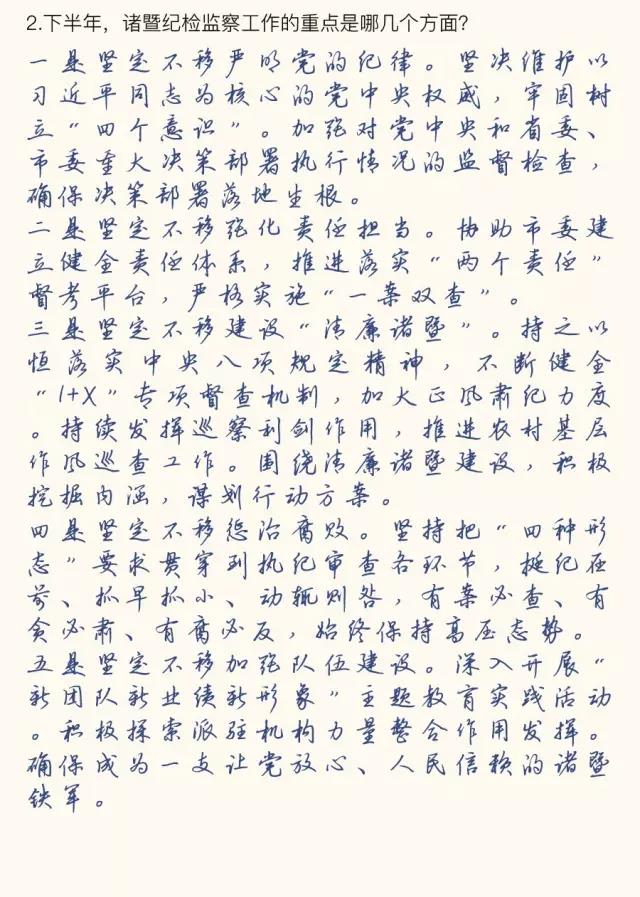 2.下半年，诸暨纪检监察工作的重点是哪几个方面？
一是坚定不移严明党的纪律。坚决维护以
习近平同志为核心的党中央权威，牢固树
立“四个意识”。加强对党中央和省委、
市委重大决策部署执行情况的监督检查，
确保决策部署落地生根。
二是坚定不移强化责任担当。协助市委建
立健全责任体系，推进落实“两个责任”
督考平台，严格实施“一案双查”。
三是坚定不移建设“清廉诸暨”。持之以
恒落实中央八项规定精神，不断健全
“1+X”专项督查机制，加大正风肃纪力度
。持续发挥巡察利剑作用，推进农村基层
作风巡查工作。围绕清廉诸暨建设，积极
挖掘内涵，谋划行动方案。
四是坚定不移惩治腐败。坚持把“四种形
态”要求贯穿到执纪审查各环节，挺纪在
前、抓早抓小、动辄则咎，有案必查、有
贪必肃、有腐必反，始终保持高压态势。
五是坚定不移加强队伍建设。深入开展“
新团队新业绩新形象”主题教育实践活动
。积极探索派驻机构力量整合作用发挥。
确保成为一支让党放心、人民信赖的诸暨
铁军。